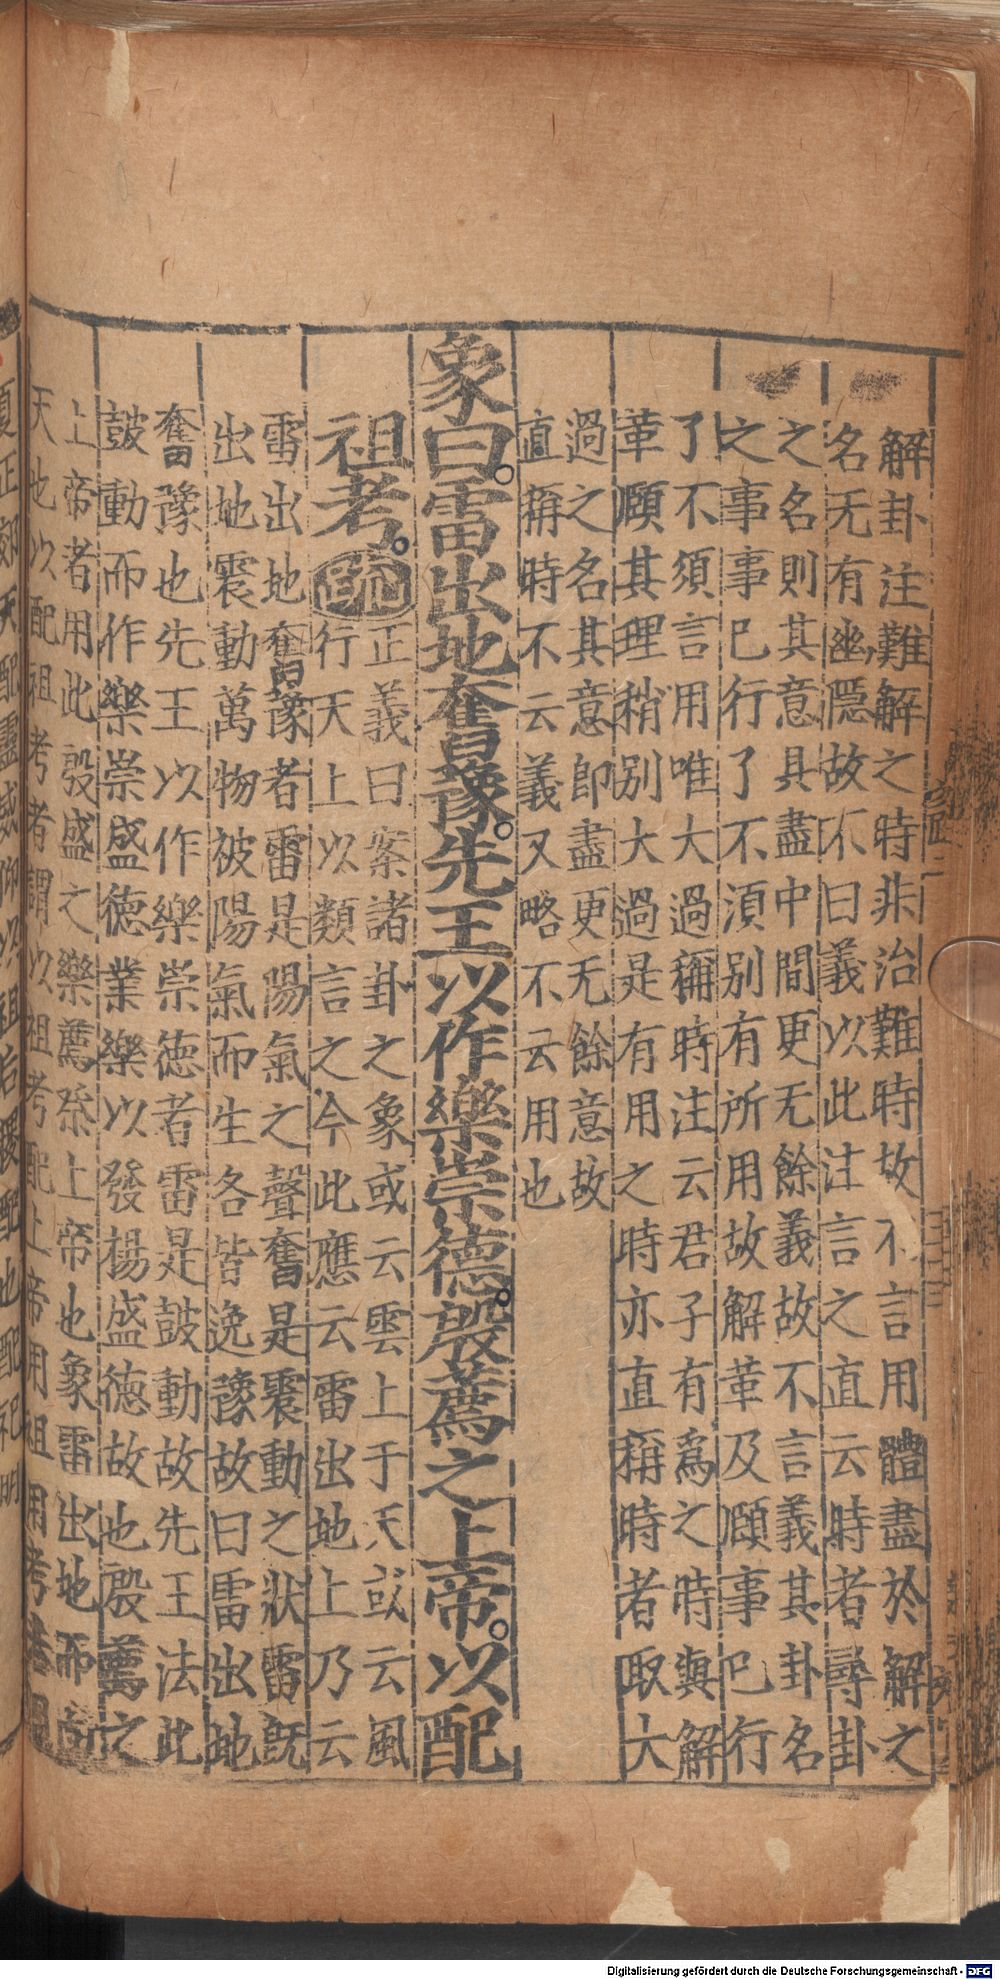 解卦注難解之時非治難時故不言用體盡於解之
名无有幽隱故不曰義以此注言之直云時者尋卦
之名則其意具盡中間更无餘義故不言義其卦名
之事事已行了不湏别有所用故解革及頤事已行
了不須言用唯大過稱時注云君子有爲之時與解
革頤其理稍别大過是有用之時亦直稱時者取大
過之名其意即盡更无餘意故
直稱時不云義又略不云用也
象曰雷出地奮豫先王以作樂崇德殷薦之上帝以配
祖考疏
正義曰案諸卦之象或云雲上于天或云風
行天上以類言之今此應云雷出地上乃云
雷出地奮豫者雷是陽氣之聲奮是震動之狀雷旣
出地震動萬物被陽氣而生各皆逸豫故曰雷出地
奮豫也先王以作樂崇徳者雷是鼓動故先王法此
鼓動而作樂崇盛徳業樂以發揚盛徳故也殷薦之
上帝者用此殷盛之樂薦祭上帝也象雷出地而向
天也以配祖考者謂以祖考配上帝用祖用考若
夏正郊天配靈感仰以祖后稷配也配祀明
Digitalisierung gefördert durch die Deutsche Forschungsgemeinschaft - DFG